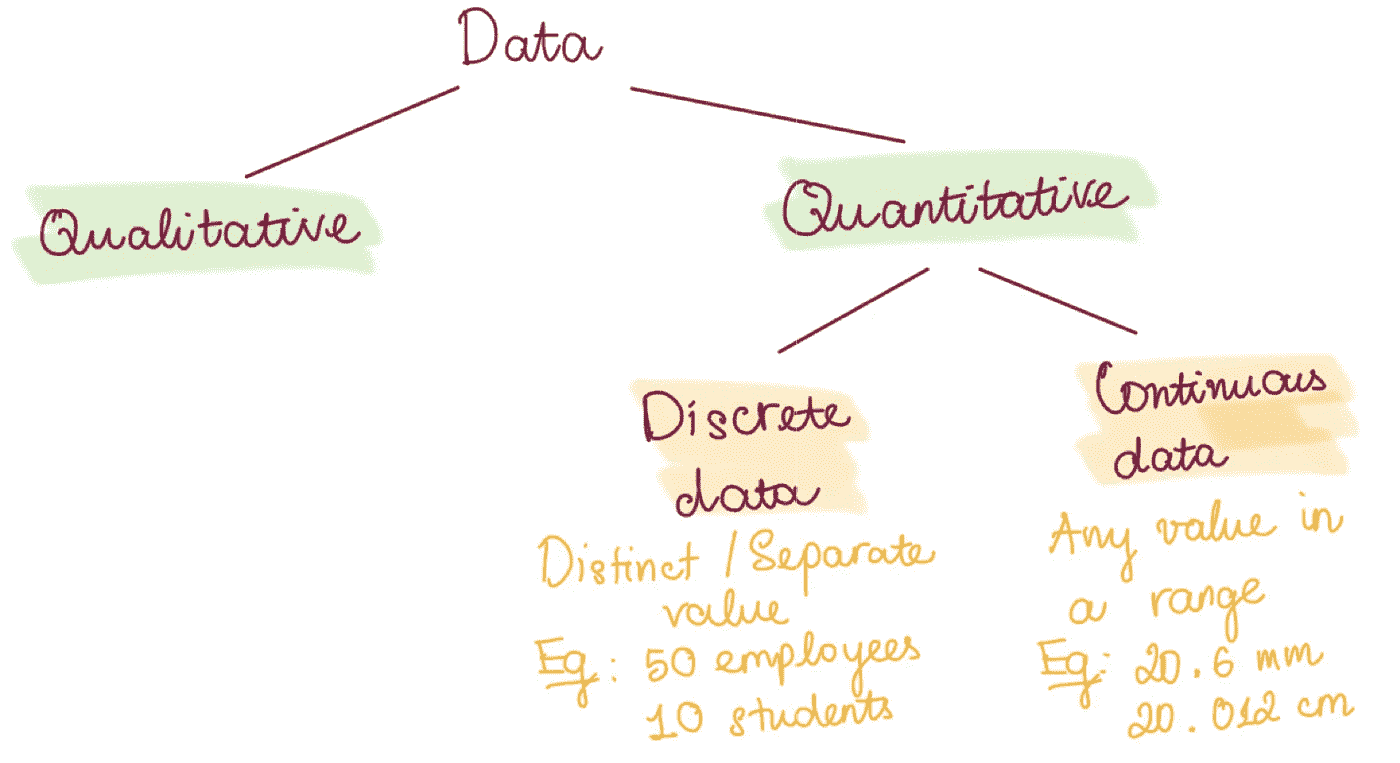 Data
Qualitative
Quantitative
Discrete
data
Distinct / Separate
value
Eg: 50 employees
10 students
Continuous
data
Any value in
a range
Eg: 20.6 mm
20.012 cm